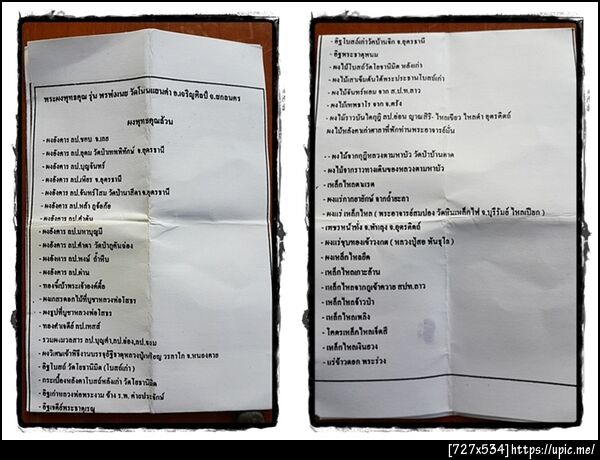 พระผงพุทธคุณ รุ่น พรพ่อเนย วัดโนนแสนคำ อ.เจริญศิลป์ จ.สกลนคร
ผงพุทธคุณล้วน
- ผงอังคาร ลป.ชอบ จ.เลย
- ผงอังคาร ลป.อุดม วัดป่าเทพพิทักษ์ จ.อุดรธานี
- ผงอังคาร ลป.บุญจันทร์
- ผงอังคาร ลป.เพียร จ.อุดรธานี
- ผงอังคาร ลป.จันทร์โสม วัดป่านาสีดา จ.อุดรธานี
- ผงอังคาร ลป.หล้า ภูจ้อก้อ
- ผงอังคาร ลป.คำตัน
- ผงอังคาร ลป.มหาบุญมี
- ผงอังคาร ลป.คำดา วัดป่าภูคันจ้อง
- ผงอังคาร ลป.หงษ์ ถ้ำหีบ
- ผงอังคาร ลป.ผ่าน
- ทองขี้เบ้าพระเจ้าองค์ตื้อ
- ผงเกสรดอกไม้ที่บูชาหลวงพ่อโสธร
- ผงธูปที่บูชาหลวงพ่อโสธร
- ทองคำเจดีย์ ลป.เทสส์
- รวมผงมวลสาร ลป.บุญคำ,ลป.อ่อง,ลป.จอม
- ผงวิเศษเข้าพิธีงานบรรจุอัฐิธาตุหลวงปู่เกษียญ วรลาโภ จ.หนองคาย
- อิฐโบสถ์ วัดโยธานิมิต (โบสถ์เก่า)
- กระเบื้องหลังคาโบสถ์หลังเก่า วัดโยธานิมิต
- อิฐเก่าหลวงพ่อพระงาม ข้าง ร.พ. ค่ายประจักษ์
- อิฐเจดีย์พระธาตุเรณู
- อิฐโบสถ์เก่าวัดบ้านจิก จ.อุดรธานี
- อิฐพระธาตุพนม
- ผงไม้โบสถ์วัดโยธานิมิต หลังเก่า
- ผงไม้เสาเข็มค้นใต้พระประธานโบสถ์เก่า
- ผงไม้จันทร์หอม จาก ส.ป.ท.ลาว
- ผงไม้เทพธาโร จาก จ.ตรัง
- ผงไม้ราวบันไดกุฎิ ลป.อ่อน ญาณสิริ- ไหลเขียว ไหลดำ อุตรดิตถ์
ผงไม้หลังคาเก่าศาลาที่พักท่านพระอาจารย์มั่น
- ผงไม้จากกุฏิหลวงตามหาบัว วัดป่าบ้านตาด
- ผงไม้จากราวทางเดินของหลวงตามหาบัว
- เหล็กไหลตาแรด
- ผงแร่กากยายักษ์ จากถ้ำยะลา
- ผงแร่ เหล็กไหล ( พระอาจารย์สมปอง วัดหินเหล็กไฟ จ.บุรีรัมย์ ไหลเปียก )
- เพชรหน้าทั่ง จ.พัทลุง จ.อุตรดิตถ์
- ผงแร่ขุมทองเขาวงกต ( หลวงปู่สอ พันธุโล )
- ผงเหล็กไหลยืด
- เหล็กไหลเกาะล้าน
- เหล็กไหลจากภูเขาควาย สปท.ลาว
- เหล็กไหลเจ้าป่า
- เหล็กไหลเพลิง
- โคตรเหล็กไหลเจ็ดสี
- เหล็กไหลเงินยวง
- แร่ข้าวตอก พระร่วง
[727x534] https://upic.me/